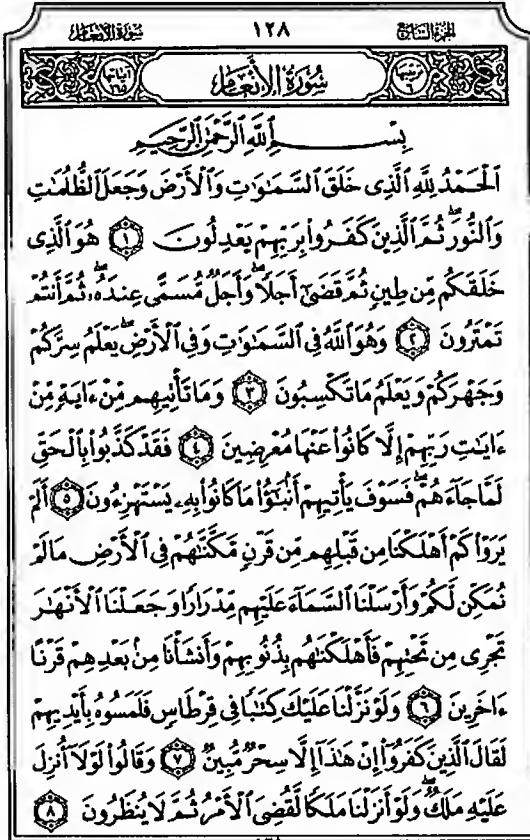 سُورَةُ الأَنْعَامِ ١٢٨ الجُزْءُ السَّابِعُ
سُورَةُ الأَنْعَامِ
بِسْمِ ٱللَّهِ ٱلرَّحْمَٰنِ ٱلرَّحِيمِ
ٱلْحَمْدُ لِلَّهِ ٱلَّذِى خَلَقَ ٱلسَّمَٰوَٰتِ وَٱلْأَرْضَ وَجَعَلَ ٱلظُّلُمَٰتِ
وَٱلنُّورَ ۖ ثُمَّ ٱلَّذِينَ كَفَرُوا۟ بِرَبِّهِمْ يَعْدِلُونَ ١ هُوَ ٱلَّذِى
خَلَقَكُم مِّن طِينٍ ثُمَّ قَضَىٰٓ أَجَلًا ۖ وَأَجَلٌ مُّسَمًّى عِندَهُۥ ۖ ثُمَّ أَنتُمْ
تَمْتَرُونَ ٢ وَهُوَ ٱللَّهُ فِى ٱلسَّمَٰوَٰتِ وَفِى ٱلْأَرْضِ ۖ يَعْلَمُ سِرَّكُمْ
وَجَهْرَكُمْ وَيَعْلَمُ مَا تَكْسِبُونَ ٣ وَمَا تَأْتِيهِم مِّنْ ءَايَةٍ مِّنْ
ءَايَٰتِ رَبِّهِمْ إِلَّا كَانُوا۟ عَنْهَا مُعْرِضِينَ ٤ فَقَدْ كَذَّبُوا۟ بِٱلْحَقِّ
لَمَّا جَآءَهُمْ ۖ فَسَوْفَ يَأْتِيهِمْ أَنۢبَٰٓؤُا۟ مَا كَانُوا۟ بِهِۦ يَسْتَهْزِءُونَ ٥ أَلَمْ
يَرَوْا۟ كَمْ أَهْلَكْنَا مِن قَبْلِهِم مِّن قَرْنٍ مَّكَّنَّٰهُمْ فِى ٱلْأَرْضِ مَا لَمْ
نُمَكِّن لَّكُمْ وَأَرْسَلْنَا ٱلسَّمَآءَ عَلَيْهِم مِّدْرَارًا وَجَعَلْنَا ٱلْأَنْهَٰرَ
تَجْرِى مِن تَحْتِهِمْ فَأَهْلَكْنَٰهُم بِذُنُوبِهِمْ وَأَنشَأْنَا مِنۢ بَعْدِهِمْ قَرْنًا
ءَاخَرِينَ ٦ وَلَوْ نَزَّلْنَا عَلَيْكَ كِتَٰبًا فِى قِرْطَاسٍ فَلَمَسُوهُ بِأَيْدِيهِمْ
لَقَالَ ٱلَّذِينَ كَفَرُوٓا۟ إِنْ هَٰذَآ إِلَّا سِحْرٌ مُّبِينٌ ٧ وَقَالُوا۟ لَوْلَآ أُنزِلَ
عَلَيْهِ مَلَكٌ ۖ وَلَوْ أَنزَلْنَا مَلَكًا لَّقُضِىَ ٱلْأَمْرُ ثُمَّ لَا يُنظَرُونَ ٨